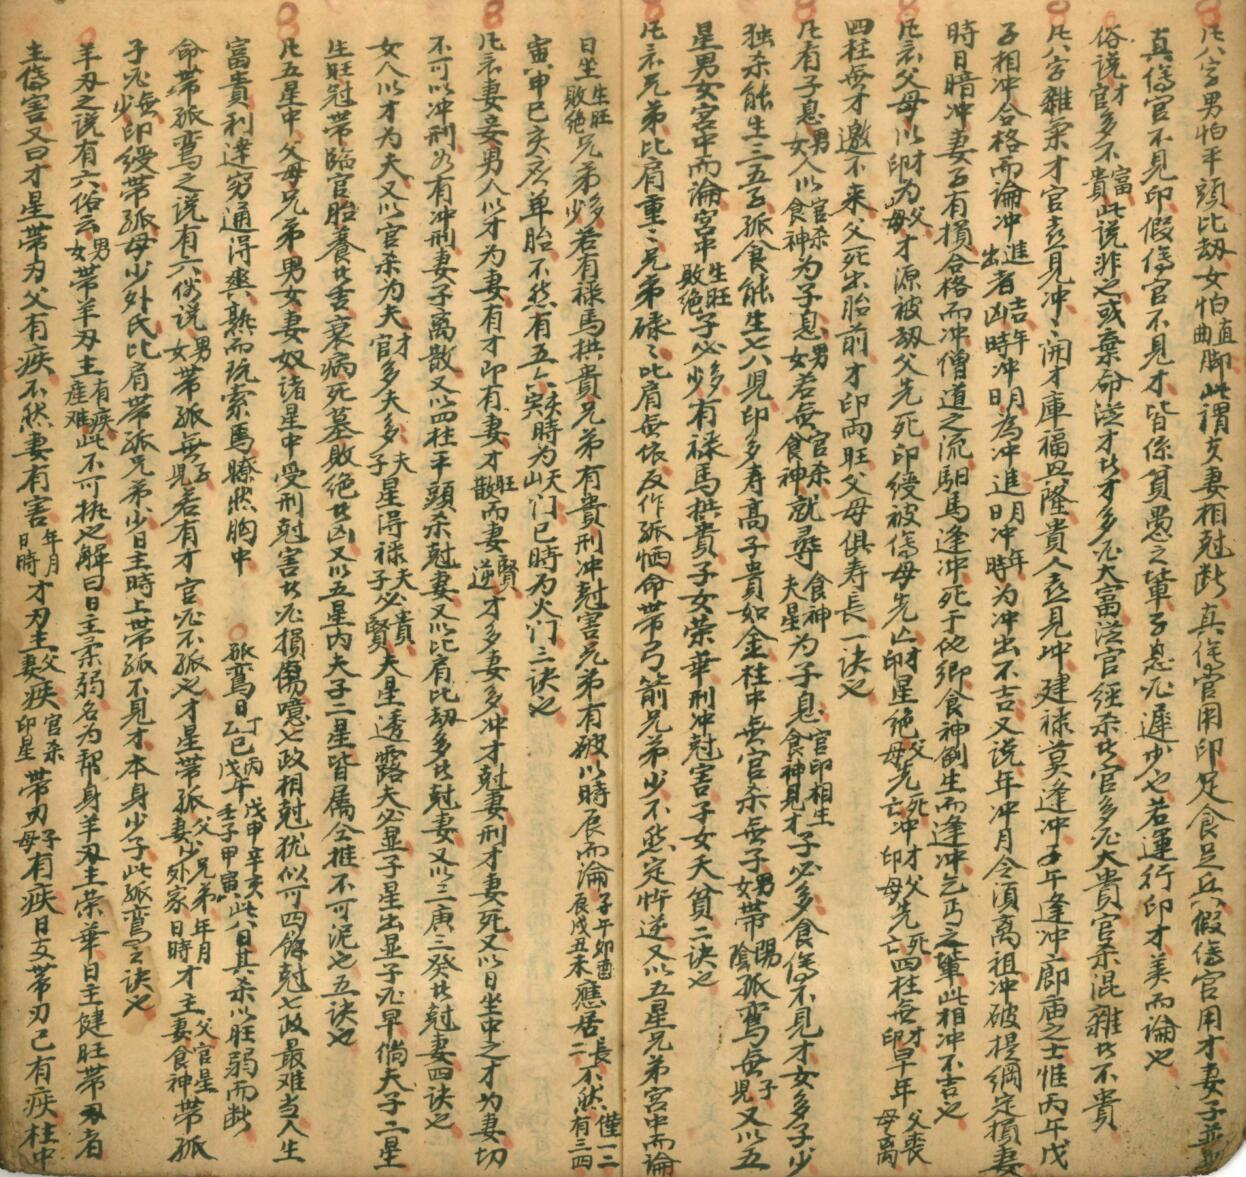 凡八字男怕平頭比劫女怕直曲脚此謂夫妻相尅断真傷官用印足食足兵假傷官用才妻子並
真傷官不見印假傷官不見才皆係貧愚之輩子息必遲少也若運行印才美而論也
俗说才官多不富貴此説非也或棄命從才者才多必大富從官經杀者官多必大貴官杀混雜者不貴
凡八字雜氣才官喜見冲冲開才庫福兴隆貴人喜見冲建禄莫逢冲子午逢冲廊庙之士惟丙午戊
子相冲合格而論冲進出者吉凶年時冲明為冲進明冲年時為冲出不吉又說年冲月令須离祖冲破提綱定損妻
時日暗冲妻子有損合格而冲僧道之流馹馬逢冲死于他鄉食神制生而逢冲乞丐之輩此相冲不吉也
凡衣父母以財印為父母才源被劫父先死印綬被傷母先亡財印星絕父母先死亡冲才父先死冲印母先亡四柱無財印早年父喪母离
四柱無才邀不来父死出胎前才印両旺父母俱寿長一诀也
凡有子息男女人以官杀食神為子息男女若無官杀食神就尋食神夫星為子息官印相生食神見才子必多食傷不見才女多子少
独杀能生三五子孤食能生七八児印多寿高子貴如金柱中無官杀無子男女帶陽陰孤鸾無子児又以五
星男女宮中而論宮中生旺敗絕子必多少有禄馬拱貴子女荣華刑冲尅害子女夭貧二诀也
凡言兄弟比肩重重兄弟碌碌比肩無依反作孤恓命帶弓箭兄弟少不然定忤逆又以五星兄弟宮中而論
日坐生旺敗絕兄弟多少若有禄馬拱貴兄弟有貴刑冲尅害兄弟有破以時辰而論子午卯酉辰戌丑未應居長二不然僅一二有三四
寅申巳亥多单胎不然有五六亥寅時為天山门巳時為火门三诀也
凡衣妻妾男人以才為妻有才即有妻才旺散而妻賢逆才多妻多冲才尅妻刑才妻死又以日坐中之才為妻切
不可以冲刑若有冲刑妻子离散又以四柱平頭杀尅妻又以比肩比劫多者尅妻又以三庚三癸者尅妻四诀也
女人以才為夫又以官杀為夫才官多夫多夫子星得禄夫子必貴賢夫星透露夫必显子星出显子必早倘夫子二星
生旺冠帶臨官胎養者吉衰病死墓敗絕者凶又以五星内夫子二星皆属全推不可泥也五诀也
凡五星中父母兄弟男女妻奴诸星中受刑尅害者必損傷噫七政相尅犹似可四餘尅七政最难当人生
富貴利達穷通得與熟而玩索焉瞭然胸中　孤鸾日乙巳丁巳丙午戊午戊申壬子辛亥甲寅此八日其杀以旺弱而断
命帶孤鸾之说有六俗说男女帶孤無子児若有才官必不孤也才星帶孤妻父少兄弟外家年月日時才主妻食神父官星帶孤
子必無少印綬帶孤母少外氏比肩帶孤兄弟少日主時上带孤不見才本身少子此孤鸾之诀也
羊刃之说有六俗云男女带羊刃主有疾産难此不可執之解曰日主柔弱名為帮身羊刃主荣華日主健旺带刃者
主傷害又曰才星带刃父有疾不然妻有害年月日時才刃主父妻疾官杀印星带刃子母有疾日支带刃己有疾柱中